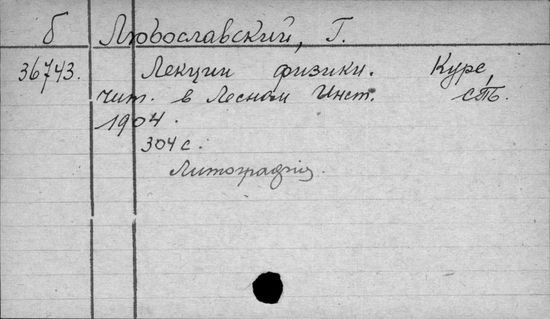 б Любославский, Г.
36743. Лекции физики. Курс,
чит. в Лесном Инст. СПб.
1904.
304 с.
Литография.